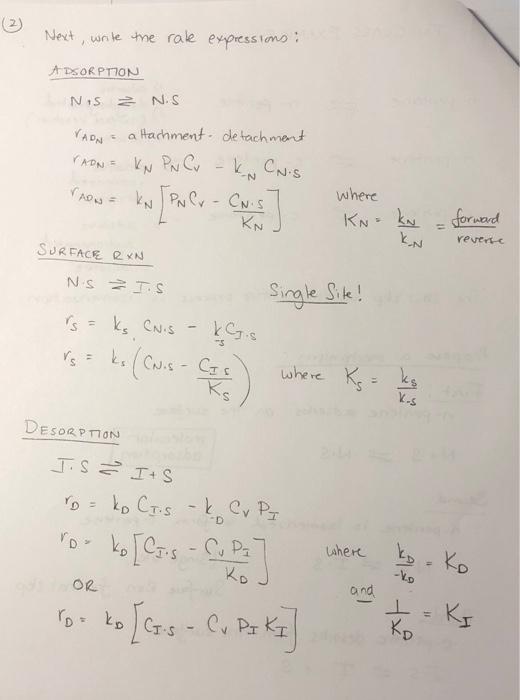 (2)
Next, write the rate expressions:
ADSORPTION
N+S ⇌ N·S
r_ADN = attachment - detachment
r_ADN = k_N P_N C_v - k_-N C_N·S
r_ADN = k_N [P_N C_v - C_N·S / K_N] where K_N = k_N / k_-N = forward / reverse
SURFACE RXN
N·S ⇌ I·S Single Site!
r_s = k_s C_N·S - k_-s C_I·S
r_s = k_s (C_N·S - C_I·S / K_s) where K_s = k_s / k_-s
DESORPTION
I·S ⇌ I + S
r_D = k_D C_I·S - k_-D C_v P_I
r_D = k_D [C_I·S - C_v P_I / K_D] where k_D / -k_D = K_D
OR and 1 / K_D = K_I
r_D = k_D [C_I·S - C_v P_I K_I]